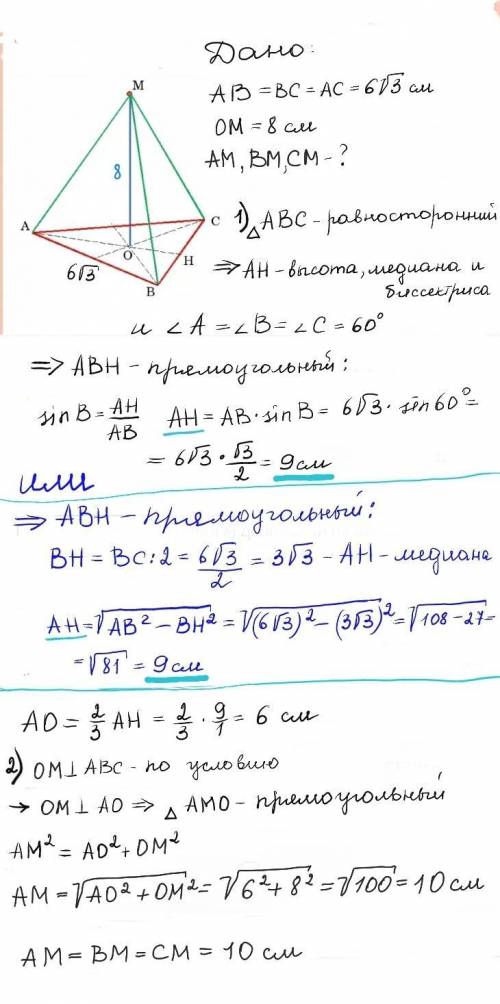 Дано:
AB = BC = AC = 6√3 см
OM = 8 см
AM, BM, CM - ?
M
8
A
C
O
H
B
6√3
1) △ABC - равносторонний
⇒ AH - высота, медиана и
биссектриса
и ∠A = ∠B = ∠C = 60°
⇒ ABH - прямоугольный:
sin B = AH/AB AH = AB · sin B = 6√3 · sin 60° =
= 6√3 · √3/2 = 9 см
или
⇒ ABH - прямоугольный:
BH = BC : 2 = 6√3/2 = 3√3 - AH - медиана
AH = √(AB² - BH²) = √((6√3)² - (3√3)²) = √(108 - 27) =
= √81 = 9 см
AO = 2/3 AH = 2/3 · 9/1 = 6 см
2) OM ⊥ ABC - по условию
→ OM ⊥ AO ⇒ △AMO - прямоугольный
AM² = AO² + OM²
AM = √(AO² + OM²) = √(6² + 8²) = √100 = 10 см
AM = BM = CM = 10 см